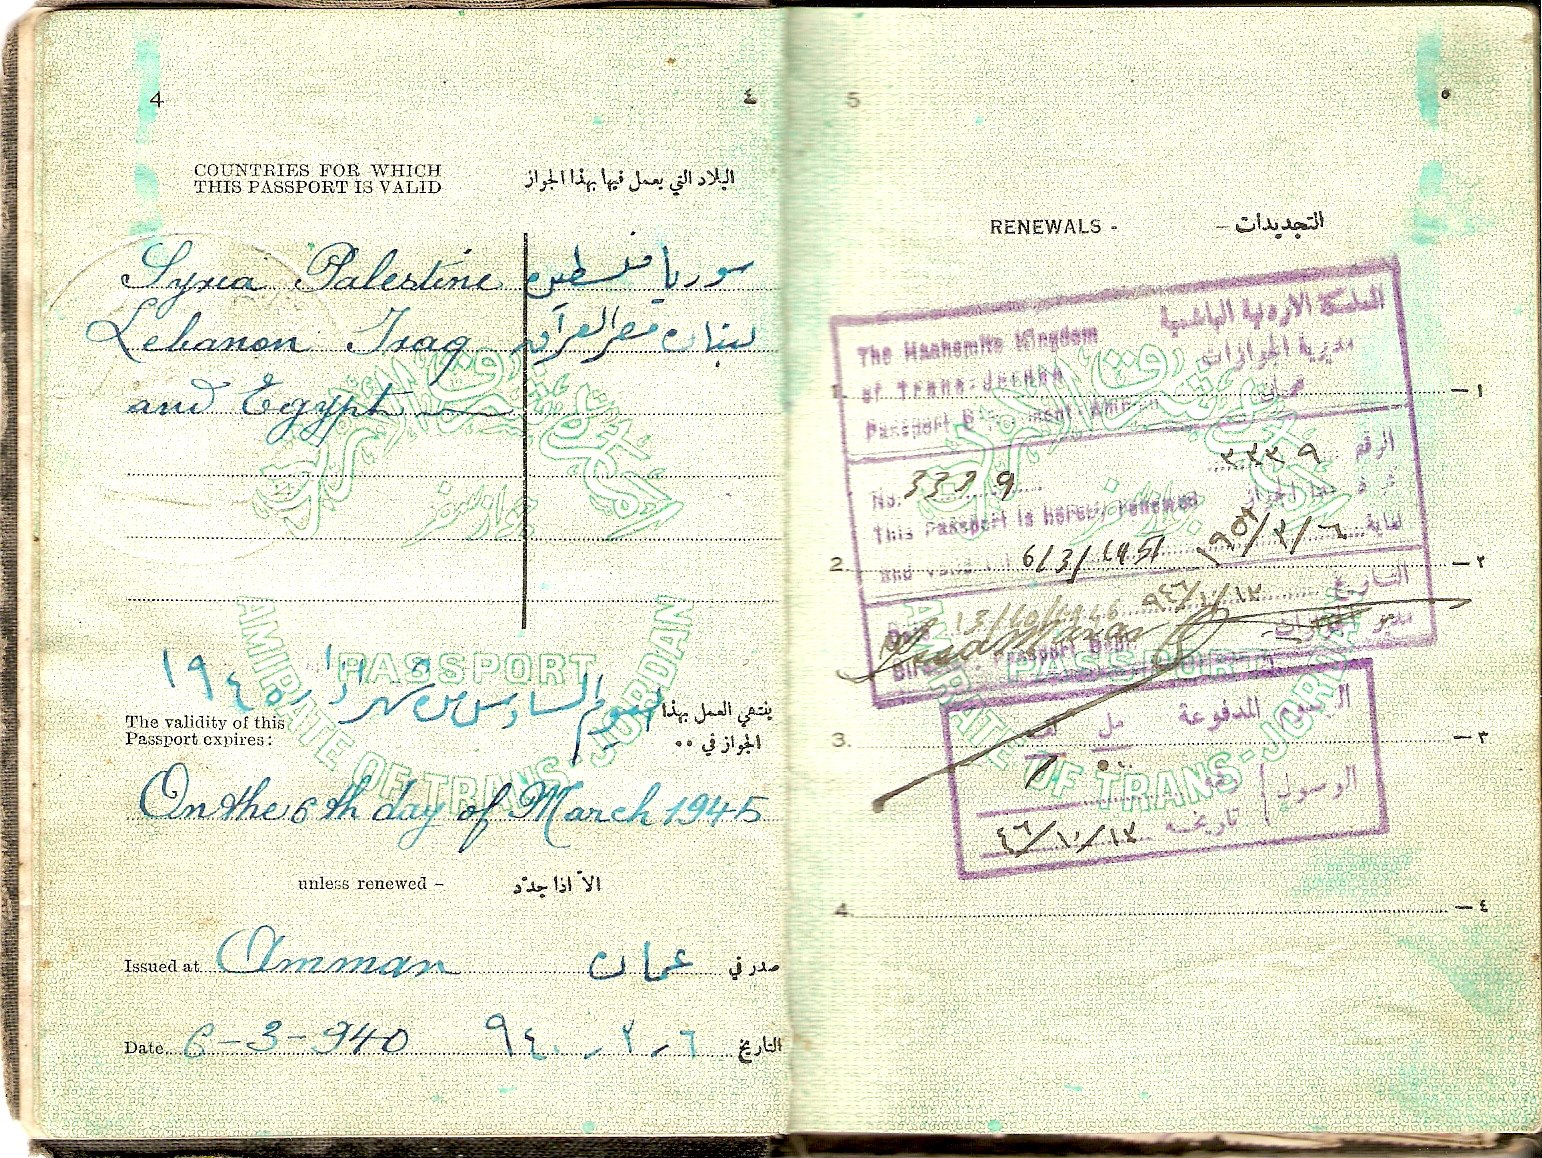 4 ٤
COUNTRIES FOR WHICH
THIS PASSPORT IS VALID
البلاد التي يعمل فيها بهذا الجواز
Syria Palestine
سوريا فلسطين
Lebanon Iraq
لبنان مصر العراق
and Egypt
PASSPORT
AMIRATE OF TRANS-JORDAN
١٩٤٥
The validity of this
Passport expires:
ينتهي العمل بهذا
الجواز في
On the 6th day of March 1945
unless renewed –
الاّ اذا جدّد
Issued at Amman
عمان صدر في
Date 6-3-940
٦ ، ٣ ، ٩٤٠ التاريخ
5 ٥
RENEWALS - التجديدات -
The Hashemite Kingdom
المملكة الاردنية الهاشمية
of Trans-Jordan
مديرية الجوازات
Passport Department Amman
عمان
1. ١ —
No. 3339
الرقم ٣٣٣٩
This Passport is hereby renewed
6/3/1951
لغاية ٦/٣/١٩٥١
2. ٢ —
Date 13/10/1946
التاريخ ١٣/١٠/٩٤٦
Director Passport Dept.
مدير الجوازات
PASSPORT
AMIRATE OF TRANS-JORDAN
الرسوم المدفوعة
مل
3. ٣ —
الوصول
تاريخه ١٣/١٠/٤٦
4. ٤ —